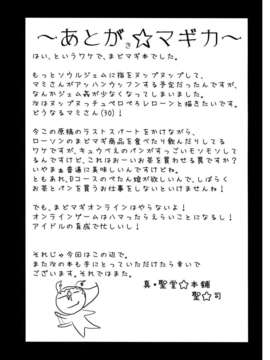 〜あとがき☆マギカ〜
はい、というワケで、まどマギ本でした。
もっとソウルジェムに指をヌップヌップして、
マミさんがアッハンウッフンする予定だったんですが、
なんかジェム姦が少なくなってしまいました。
次はヌプッヌッチュペロペロレローンと描きたいです。
どうなるマミさん(30)!
今この原稿のラストスパートをかけながら、
ローソンのまどマギ商品を食べたり飲んだりしてる
ワケですが、キュウべえのパンがすっごいモソモソして
るんですけど、これはおーいお茶を買わせる罠ですか?
いやまぁ普通に美味しいんですけどね。
ともあれ、Dコースのぺたん娘が欲しいんで、しばらく
お茶とパンを買うお仕事をしないといけませんね!
でも、まどマギオンラインはやらないよ!
オンラインゲームはハマったらえらいことになるし!
アイドルの育成で忙しいし!
それじゃ今回はこの辺で。
また次の本も手にとっていただけたら幸いで
ございます。それではまた。
真・聖堂☆本舗
聖☆司